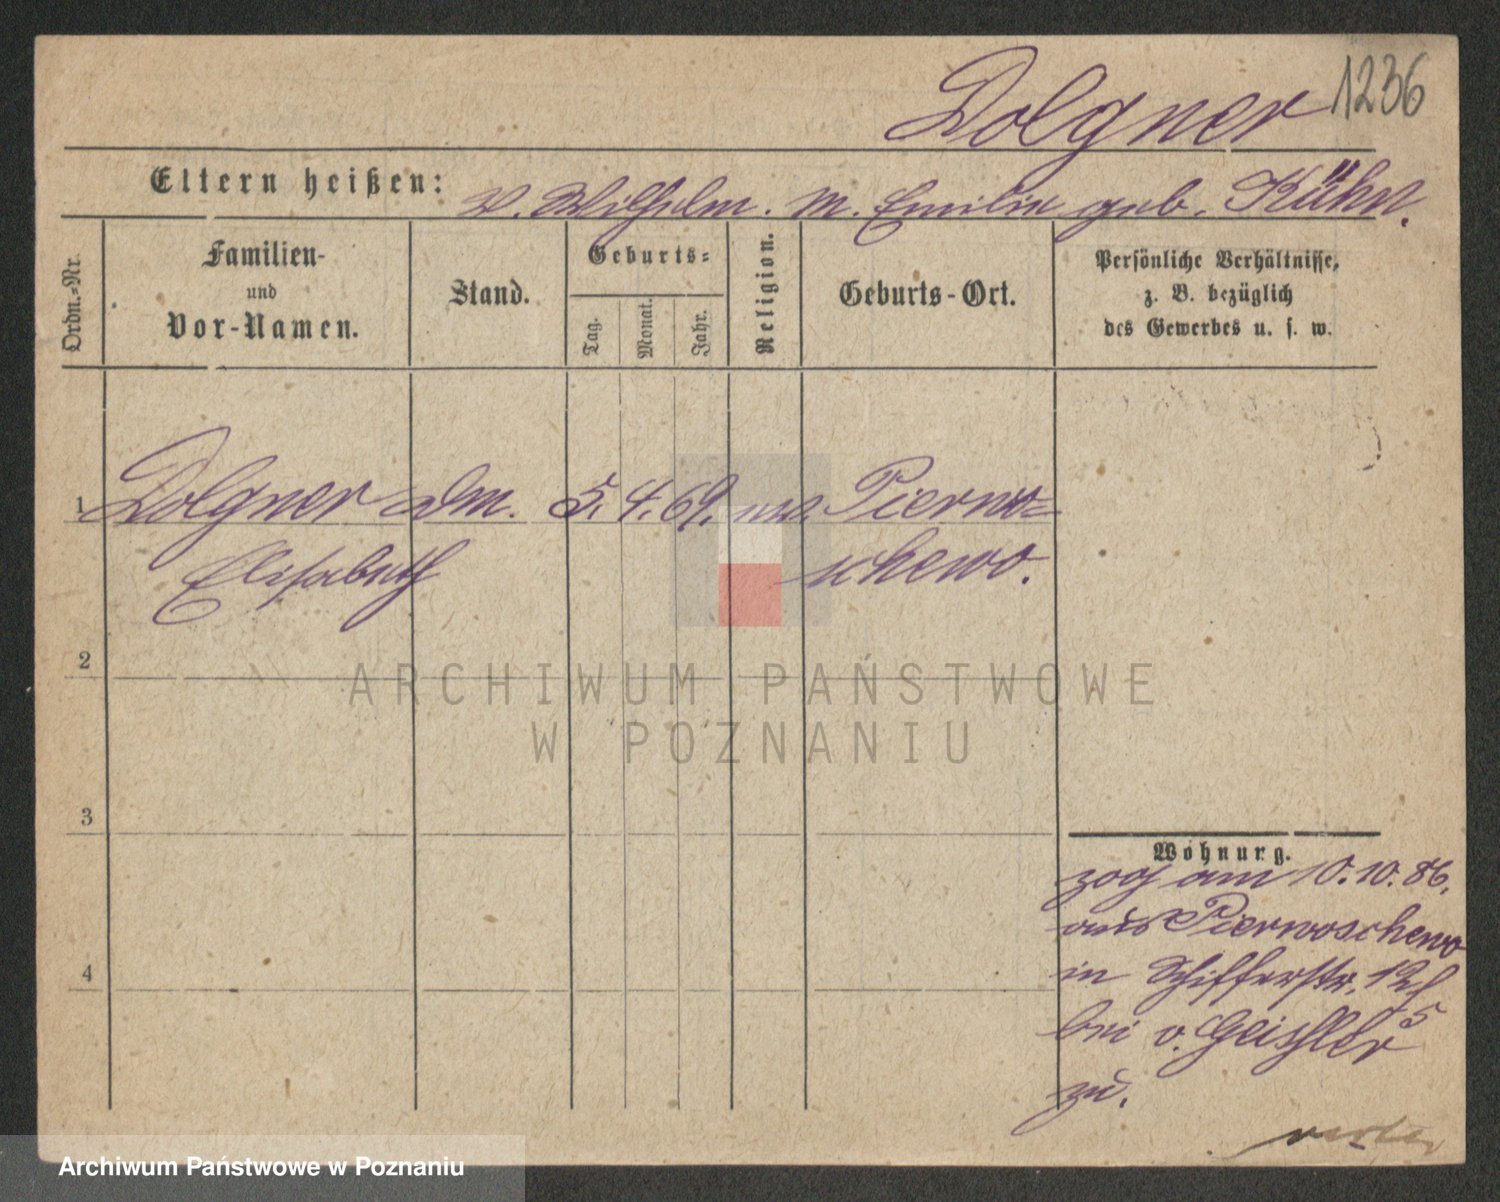 1236
Dolgner
Eltern heißen: V. Wilhelm. M. Emilie geb. Kühn.
Ordn.-Nr.
Familien-
und
Vor-Namen.
Stand.
Geburts-
Tag.
Monat.
Jahr.
Religion.
Geburts-Ort.
Persönliche Verhältnisse,
z. B. bezüglich
des Gewerbes u. s. w.
1 Dolgner Dm. 5. 4. 69. ev. Pierwo=
Elisabeth schewo.
2
ARCHIWUM PAŃSTWOWE
W POZNANIU
3
Wohnung.
zog am 10.10.86.
aus Pierwoschewo
in Schifferstr.
4
bei v. Geissler
zu.
Archiwum Państwowe w Poznaniu